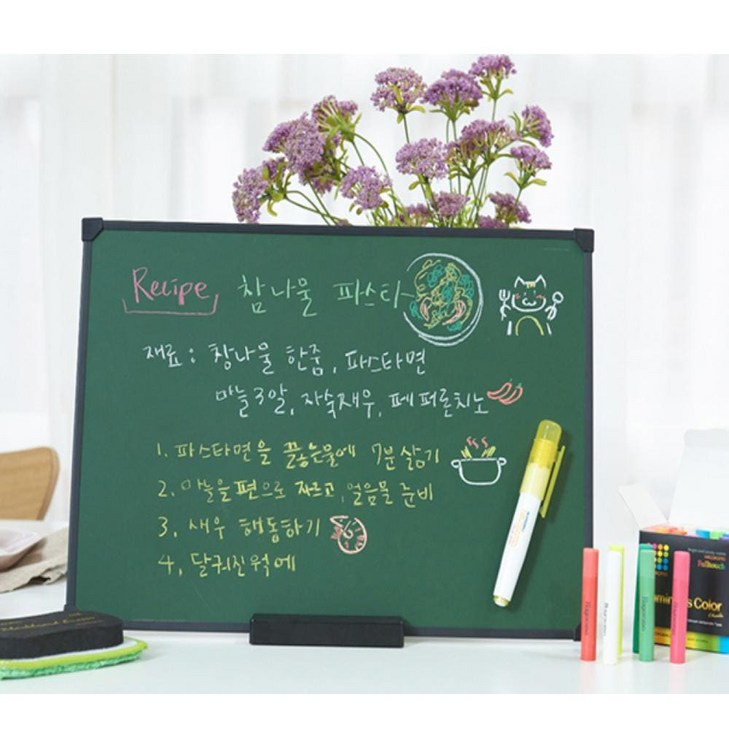 Recipe 참나물 파스타
재료 : 참나물 한줌, 파스타면
마늘 3알, 자숙새우, 페퍼론치노
1. 파스타면을 끓는물에 7분 삶기
2. 마늘을 편으로 자르고, 얼음물 준비
3. 새우 해동하기
4. 달궈진 웍에
Color